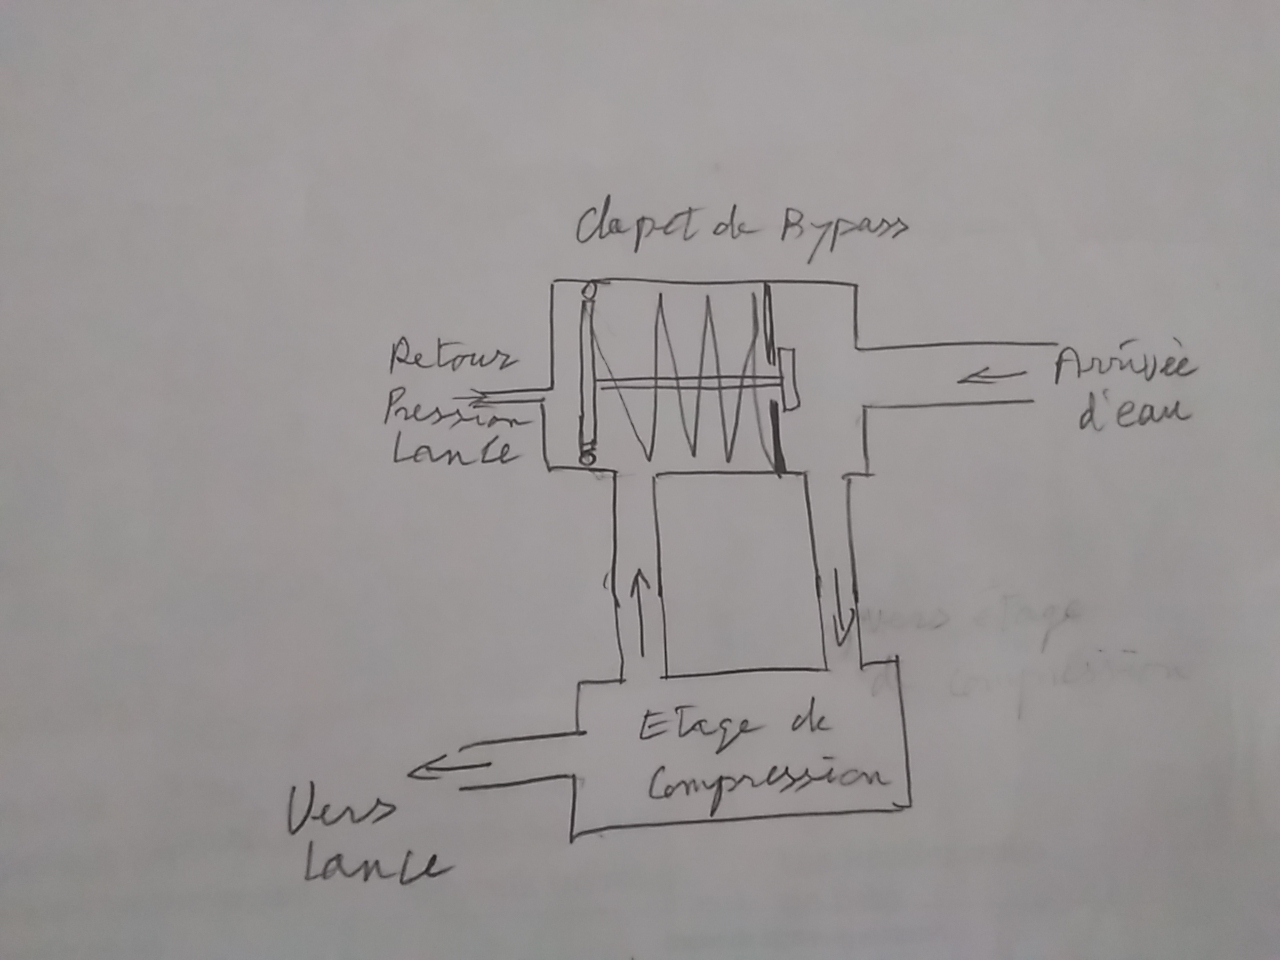 Clapet de Bypass
Retour
Pression
Lance
Arrivée
d'eau
vers étage
de compression
Etage de
Compression
Vers
Lance